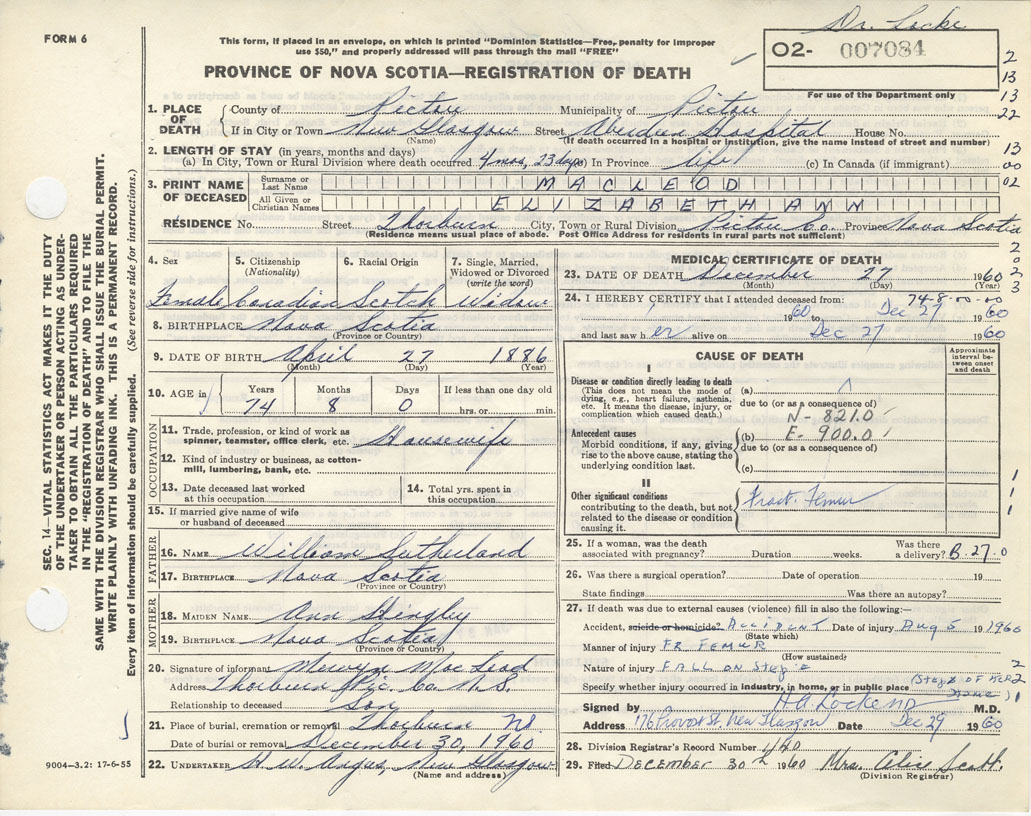 Dr. Locke
FORM 6
This form, if placed in an envelope, on which is printed "Dominion Statistics—Free, penalty for improper
use $50," and properly addressed will pass through the mail "FREE"
O2- 007084
For use of the Department only
PROVINCE OF NOVA SCOTIA—REGISTRATION OF DEATH
2
13
13
22
13
00
02
1. PLACE OF DEATH County of Pictou Municipality of Pictou
If in City or Town New Glasgow Street Aberdeen Hospital House No.
(Name) (If death occurred in a hospital or institution, give the name instead of street and number)
2. LENGTH OF STAY (in years, months and days)
(a) In City, Town or Rural Division where death occurred. 4 mos, 23 days (b) In Province life (c) In Canada (if immigrant)
3. PRINT NAME OF DECEASED Surname or Last Name MACLEOD
All Given or Christian Names ELIZABETH ANN
RESIDENCE No. Street Thorburn City, Town or Rural Division Pictou Co. Province Nova Scotia
(Residence means usual place of abode. Post Office Address for residents in rural parts not sufficient)
SEC. 14—VITAL STATISTICS ACT MAKES IT THE DUTY
OF THE UNDERTAKER OR PERSON ACTING AS UNDER-
TAKER TO OBTAIN ALL THE PARTICULARS REQUIRED
IN THE "REGISTRATION OF DEATH" AND TO FILE THE
SAME WITH THE DIVISION REGISTRAR WHO SHALL ISSUE THE BURIAL PERMIT.
WRITE PLAINLY WITH UNFADING INK. THIS IS A PERMANENT RECORD.
Every item of information should be carefully supplied. (See reverse side for instructions.)
4. Sex 5. Citizenship (Nationality) 6. Racial Origin 7. Single, Married, Widowed or Divorced (write the word)
Female Canadian Scotch Widow
8. BIRTHPLACE Nova Scotia
(Province or Country)
9. DATE OF BIRTH April 27 1886
(Month) (Day) (Year)
10. AGE in Years Months Days If less than one day old
74 8 0 hrs. or min.
OCCUPATION
11. Trade, profession, or kind of work as spinner, teamster, office clerk, etc. Housewife
12. Kind of industry or business, as cotton-mill, lumbering, bank, etc.
13. Date deceased last worked at this occupation
14. Total yrs. spent in this occupation
15. If married give name of wife or husband of deceased
FATHER
16. NAME William Sutherland
17. BIRTHPLACE Nova Scotia
(Province or Country)
MOTHER
18. MAIDEN NAME Ann Hingley
19. BIRTHPLACE Nova Scotia
(Province or Country)
20. Signature of informant Mervyn MacLeod
Address Thorburn Pic. Co. N.S.
Relationship to deceased Son
21. Place of burial, cremation or removal Thorburn NS
Date of burial or removal December 30, 1960
22. UNDERTAKER H. W. Angus, New Glasgow
(Name and address)
9004—3.2: 17-6-55
MEDICAL CERTIFICATE OF DEATH
23. DATE OF DEATH December 27 1960
(Month) (Day) (Year)
24. I HEREBY CERTIFY that I attended deceased from: 74-8-00-00
1960 to Dec 27 1960
and last saw her alive on Dec 27 1960
CAUSE OF DEATH
Approximate interval between onset and death
I
Disease or condition directly leading to death
(This does not mean the mode of dying, e.g., heart failure, asthenia, etc. It means the disease, injury, or complication which caused death.)
(a)
due to (or as a consequence of)
N- 821.0
Antecedent causes
Morbid conditions, if any, giving rise to the above cause, stating the underlying condition last.
(b) E- 900.0
due to (or as a consequence of)
(c)
II
Other significant conditions contributing to the death, but not related to the disease or condition causing it.
Fract. Femur
25. If a woman, was the death associated with pregnancy? Duration weeks. Was there a delivery? B.27.0
26. Was there a surgical operation? Date of operation 19
State findings Was there an autopsy?
27. If death was due to external causes (violence) fill in also the following:—
Accident, suicide or homicide? ACCIDENT Date of injury Aug 5 1960
(State which)
Manner of injury FR FEMUR
(How sustained)
Nature of injury FALL ON STEPS
Specify whether injury occurred in industry, in home, or in public place (Steps of her home)
Signed by H.A. Locke MD M.D.
Address 176 Provost St, New Glasgow Date Dec 29 1960
28. Division Registrar's Record Number 440
29. Filed December 30th 1960 Mrs. Alice Scott.
(Division Registrar)